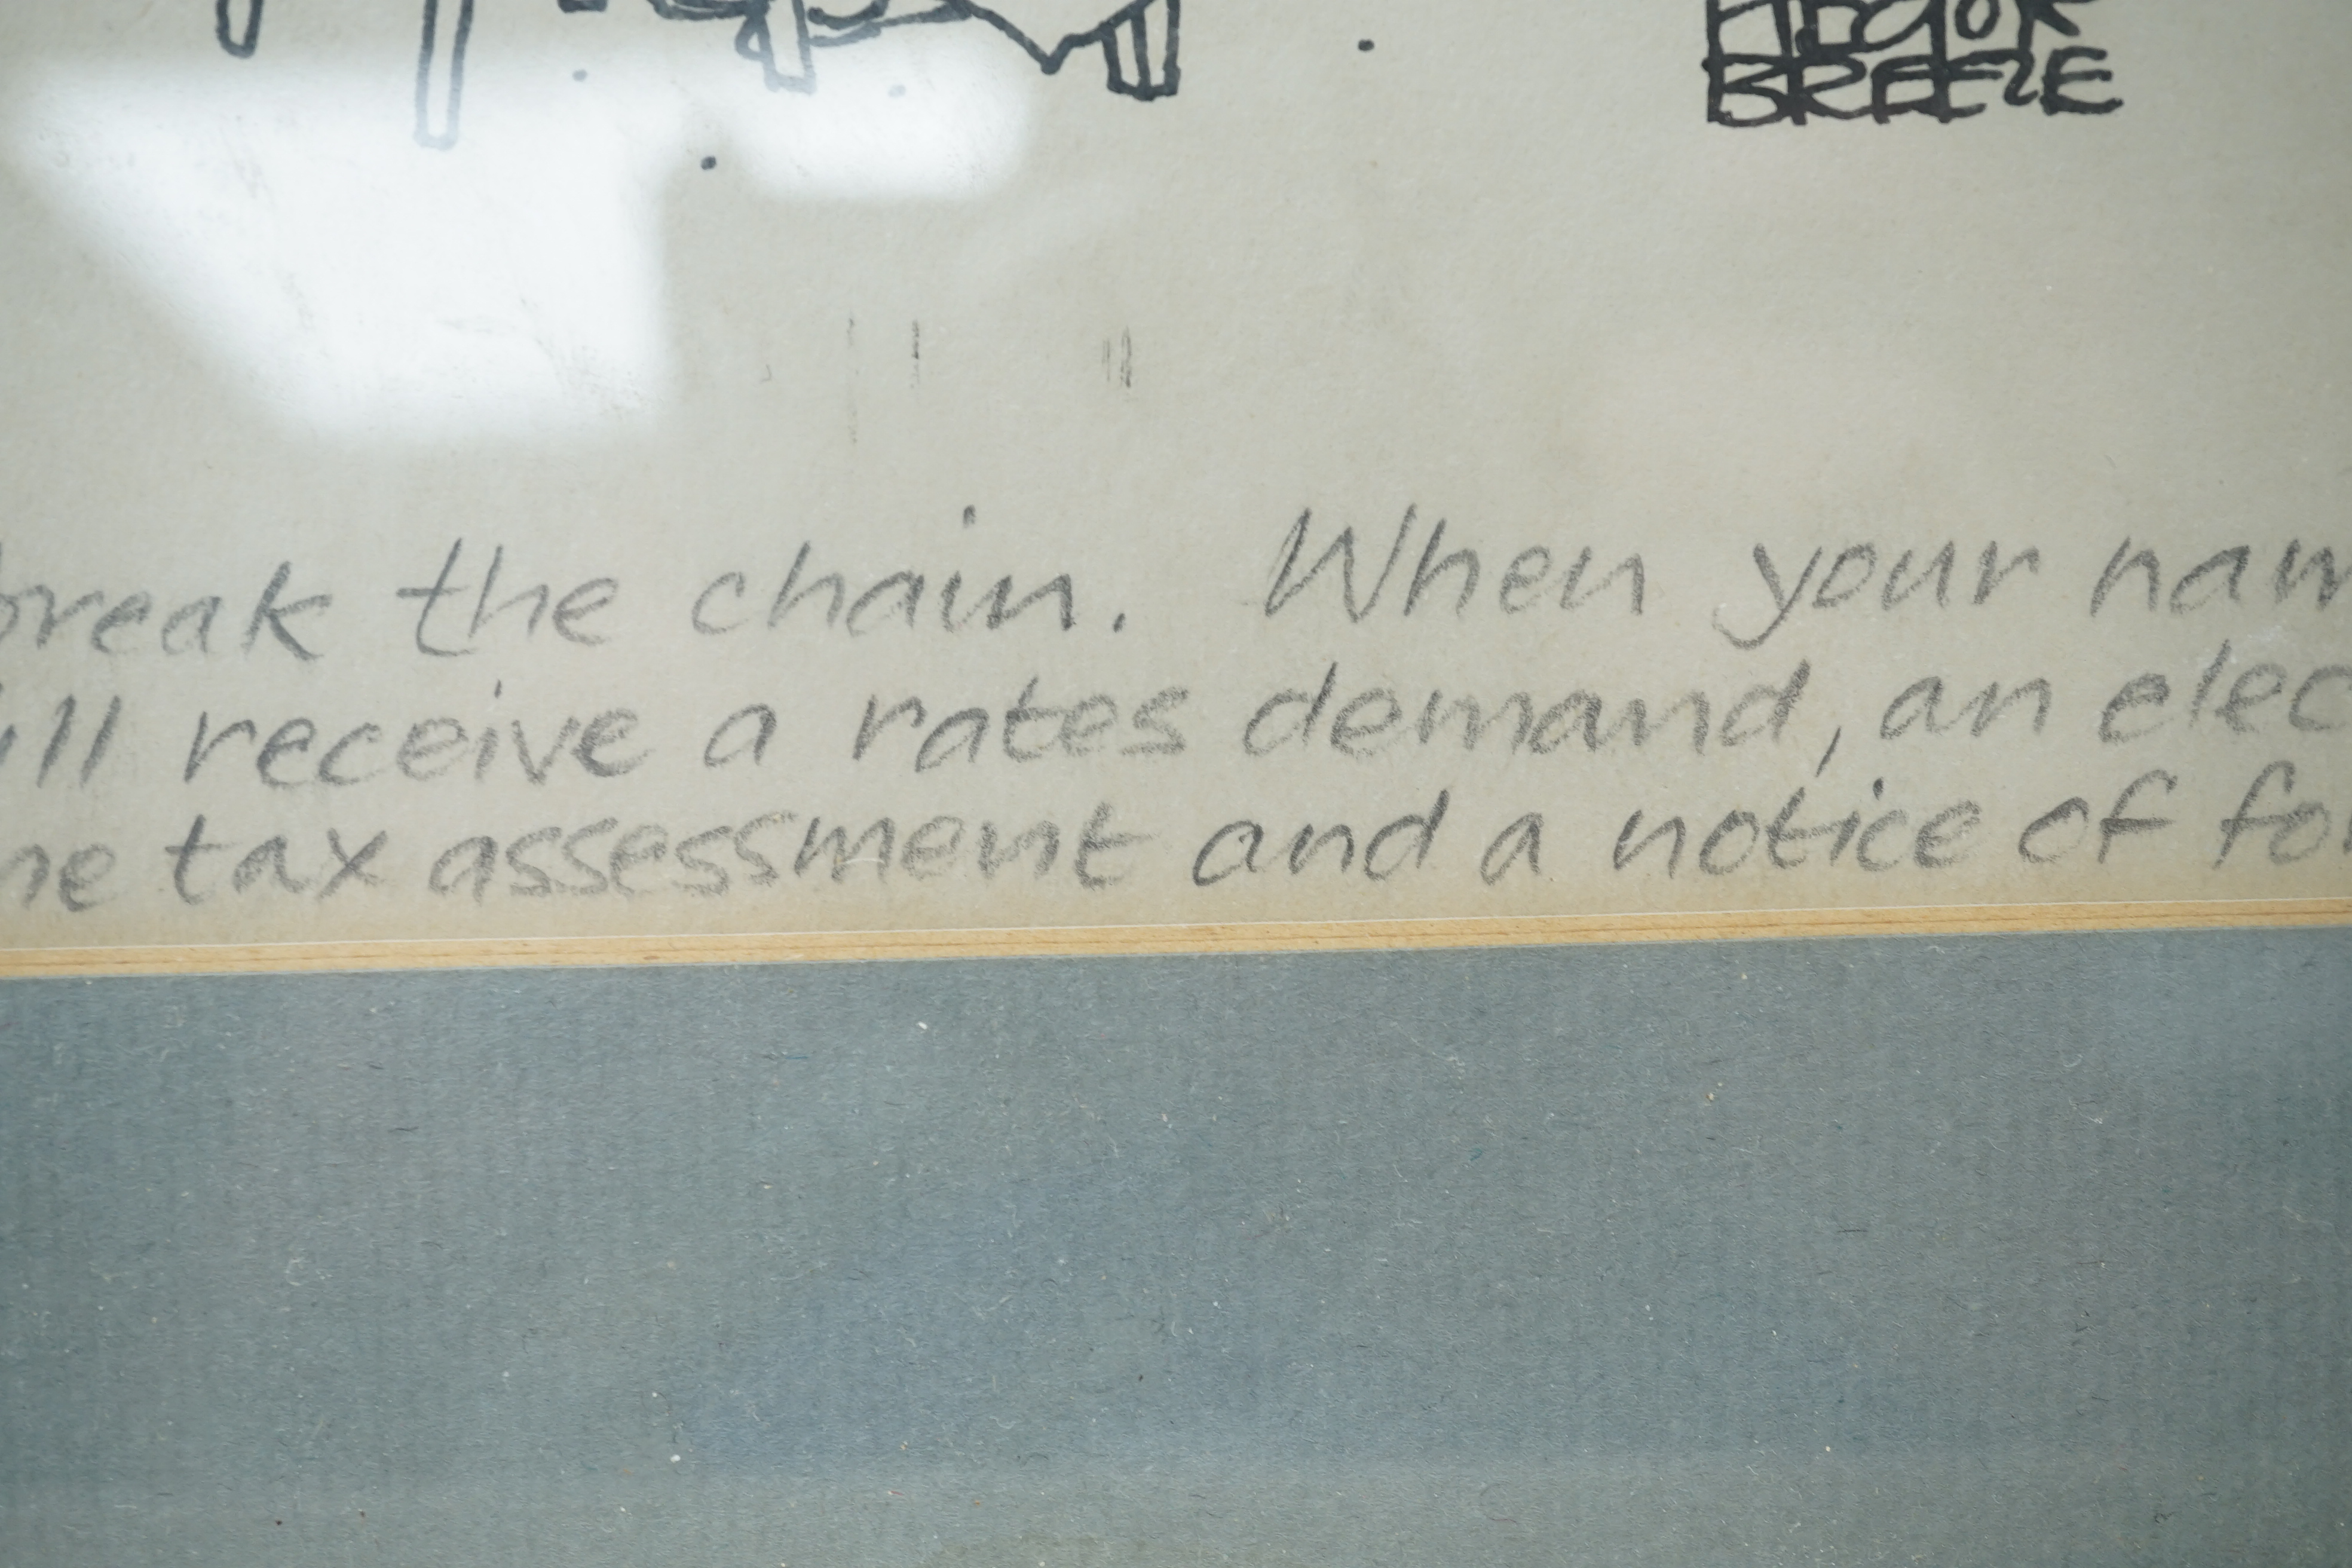 BREEZE
break the chain. When your nam
ill receive a rates demand, an elec
ne tax assessment and a notice of fo